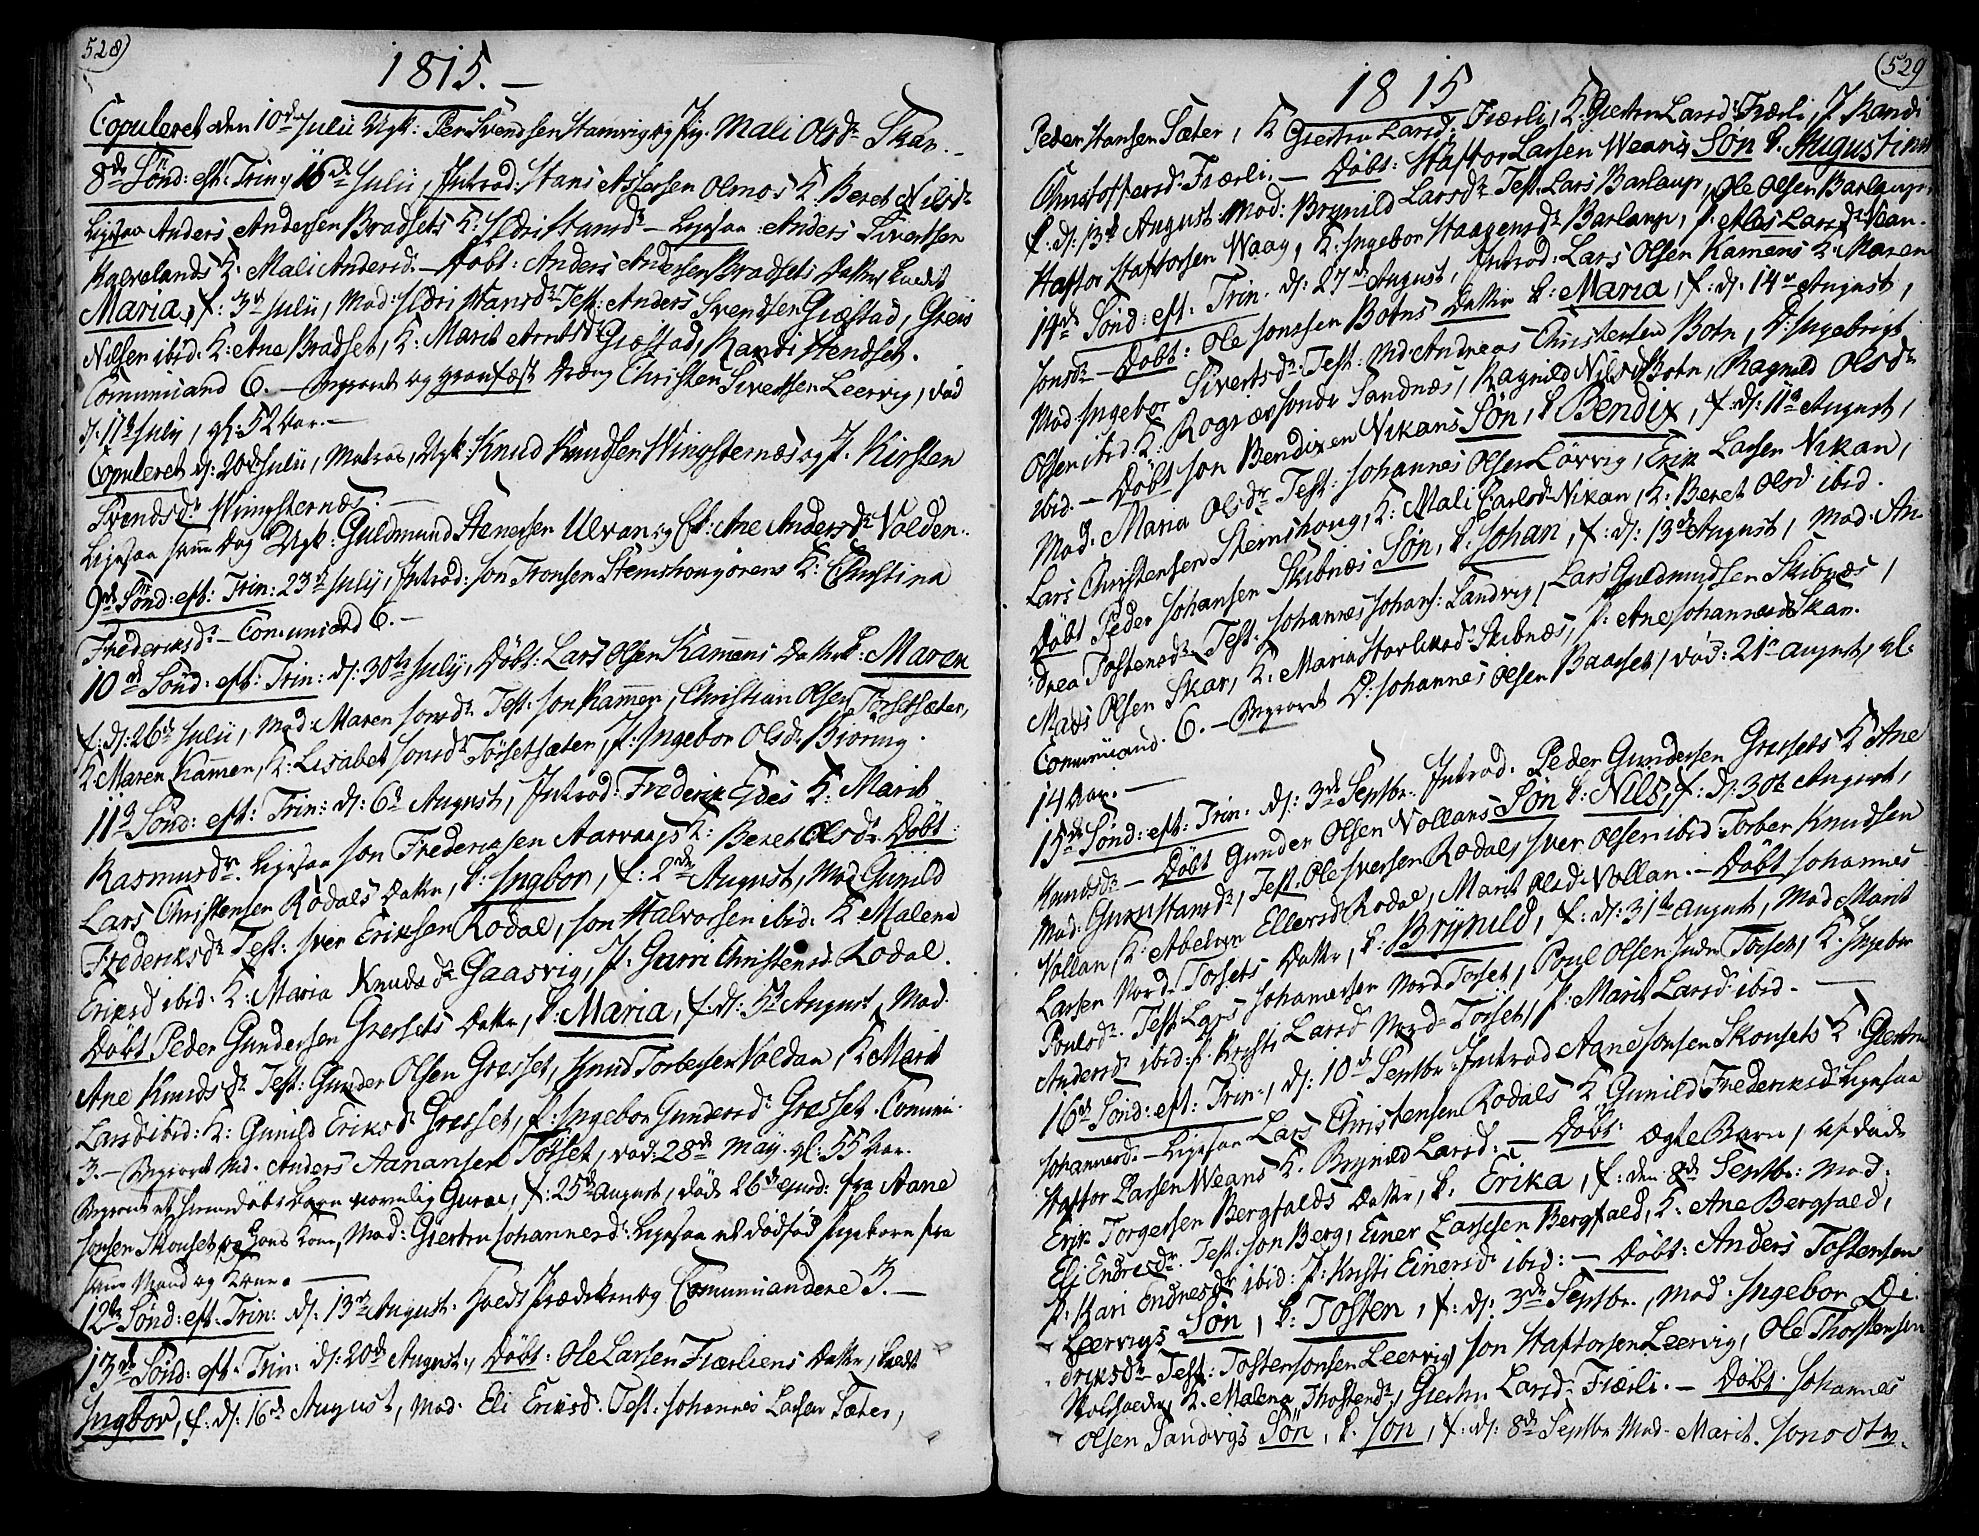 528)
1815.
Copuleret den 10de Julii Ugk: Per Svendsen Hamvig og Pig. Mali Olsdr Skar.
8de Sönd: eft: Trin: 16de Julii, Introd: Hans Assersen Olmos K. Beret Nilsdr
Ligesaa Anders Andersen Bradsets K: Sldri Hansdr - Ligesaa: Anders Sivertsen
Kalvelands K. Mali Andersd. - Döbt: Anders Andersen Bradsets Datter kaldt
Maria, f: 3de Julii, Mod: Sldri Hansdr Test: Anders Svendsen Giæstad, Greis
Nilsen ibid. K: Ane Bradset, K: Marit Arntsdr Giæstad, Randi Hendset.
Communicand 6. - Begravet og grav fæst Dreng Christen Sivertsen Leervig, död
d: 17de July, gl: 52 Aar. -
Copuleret d: 20de Julii, Matros, Ugk: Knud Knudsen Wingsternæs og P. Kirsten
Svendsdr Wingsternæs. -
Ligesaa samme Dag Ugk: Guldmund Stenersen Ulvan og Ef: Ane Andersdr Volden.
9de Sönd: eft: Trin: 23de July, Introd: Jon Tronsen Stemshougörens K: Christina
Frederiksdr - Communicand 6. -
10de Sönd: eft: Trin: d: 30te July, Döbt: Lars Olsen Kamens Datter k: Maren
f: d: 26de Julii, Mod: Maren Jonsdr Test: Jon Kamen, Christian Olsen Torsetsæter,
K. Maren Kamen, K: Lisabet Jonsdr Törsetsæter, P: Ingebor Olsdr Biöring.
11te Sönd: eft: Trin: d: 6te August, Introd: Frederik Eides K: Marit
Rasmusdr. Ligesaa Jon Frederiksen Aarvaags K: Beret Olsdr Döbt:
Lars Christensen Rodals Datter, k: Ingbor, f: 2den August, Mod Gunild
Frederiksdr Test: Iver Eriksen Rodal, Jon Halvorsen ibid: K Malena
Eriksd ibid. K: Maria Knudsdr Gaasvig, P. Gurri Christensd. Rodal.
Döbt Peder Gundersen Gresets Datter, k: Maria, f: d: 5te August, Mod:
Ane Knudsdr Test: Gunder Olsen Gresset, Knud Torbersen Voldan, K Marit
Larsd ibid: K: Gunild Eriksd Gresset, P: Ingebor Gundersd Gresset. Communi.
3. - Begravet Md. Anders Aanansen Törset, död: 28de May. gl: 55 Aar.
Begravet et hiemedöbt Barn navnlig Guroe, f: 25de August, döde 26de ejusd: fra Aane
Jonsen Skouset og Hans Kone, Mod: Giertru Johannesd: Ligesaa et dödföd Pigebarn fra
samme Mand og Kone.
12te Sönd: eft: Trin: d: 13de August. Holdt Prædiken og Communicandere 3. -
13de Sönd: eft: Trin: d: 20de August, Döbt: Ole Larsen Fiærliens Datter, kaldt
Ingbor, f: d: 16de August, Mod: Eli Eriksd. Test: Johannes Larsen Sæter,
(529
1815
Peder Hansen Sæter, K Giertru Larsd: Fiærli, K: Giertru Larsd: Fiærli, P Randi
Christoffersd. Fiærli. - Döbt: Haftor Larsen Weans Søn k. Augustinus
f: d: 13de August Mod: Brynild Larsdr Test. Lars Barlaup, Ole Olsen Barlaup,
Haftor Haftorsen Waag, K: Ingebor Haagensdr Barlaup, P. Ales Larsdr Vean.
14de Sönd: eft: Trin. d: 27de August, Introd: Lars Olsen Kamens K: Maren
Jonsdr - Döbt: Ole Jonssen Botns Datter k: Maria, f: d: 14de August,
Mod: Ingebor Sivertsdr. Test: Md: Andreas Christensen Botn, D: Ingebrigt
Olsen ibid: K: Rognæs Jonsdr Sandnæs, Ragnild Nilsdr Botn, Ragnild Olsdr
ibid. - Döbt Jon Bendixen Nikans Søn, k Bendix, f: d: 11te August,
Mod. Maria Olsdr Test: Johannes Olsen Lövvig, Erik Larsen Nikan,
Lars Christensen Stemshoug, K: Mali Carlsd. Nikan, K: Beret Olsd ibid.
Döbt Peder Johansen Skibnæs Søn, k. Johan, f: d: 13de August, Mod: An-
drea Tostensdr. Test: Johannes Johans: Sandvig, Lars Guldmundsen Skibnæs,
Mads Olsen Skar, K. Maria Storliksd. Skibnæs, P. Ane Johannesd Skar.
Communicand. 6. - Begravet D: Johannes Olsen Baasset, död: 21de August, gl.
14 Aar. -
15de Sönd: eft: Trin. d: 3de Septbr. Introd. Peder Gundersen Gressets K Ane
Knudsdr. - Döbt Gunder Olsen Vollans Søn k: Nils, f: d: 30te August,
Mod: Guru Hansdr, Test. Ole Iversen Rodal, Iver Olsen ibid Torber Knudsen
Vollan, K: Abelvin Ellersd Rodal, Marit Olsdr Vollan. - Döbt Johannes
Larsen Nord-Torsets Datter, k: Brynild, f: d: 31te August, Mod Marit
Poulsdr. Test Lars Johannesen Nord Torset, Poul Olsen Indre Torset, K. Ingebor
Andersd ibid: P. Kristi Larsd Nord-Torset, P: Marit Larsd ibid. -
16de Sönd: eft: Trin., d: 10de Septbr Introd Aane Jonsen Skousets K. Giertru
Johannesd. - Ligesaa Lars Christensen Rodals K Gunild Frederiksd Ligesaa
Haftor Larsen Weans K. Brynild Larsd. - Döbt: ægte Barn, af döde
Erik Torgersen Bergfalds Datter, k: Erika, f: den 8de Septbr: Mod:
Eli Endresdr. Test: Jon Berg, Einer Larssen Bergfald, K. Ane Bergfald,
P. Kari Endresdr ibid: P: Kristi Einersdr ibid: - Döbt: Anders Tostensen
Leervigs Søn, k: Tosten, f: d: 3de Septbr., Mod: Ingebor Di-
driksdr Test: Tosten Jonsen Leervig, Jon Haftorsen Leervig, Ole Thorstensen
Voldsæter, K. Malena Thostensdr, Giertru Larsdr Fiærli. - Döbt Johannes
Olsen Sandvigs Søn, k. Jon, f: d: 8de Septbr Mod. Marit Jonsdtr.